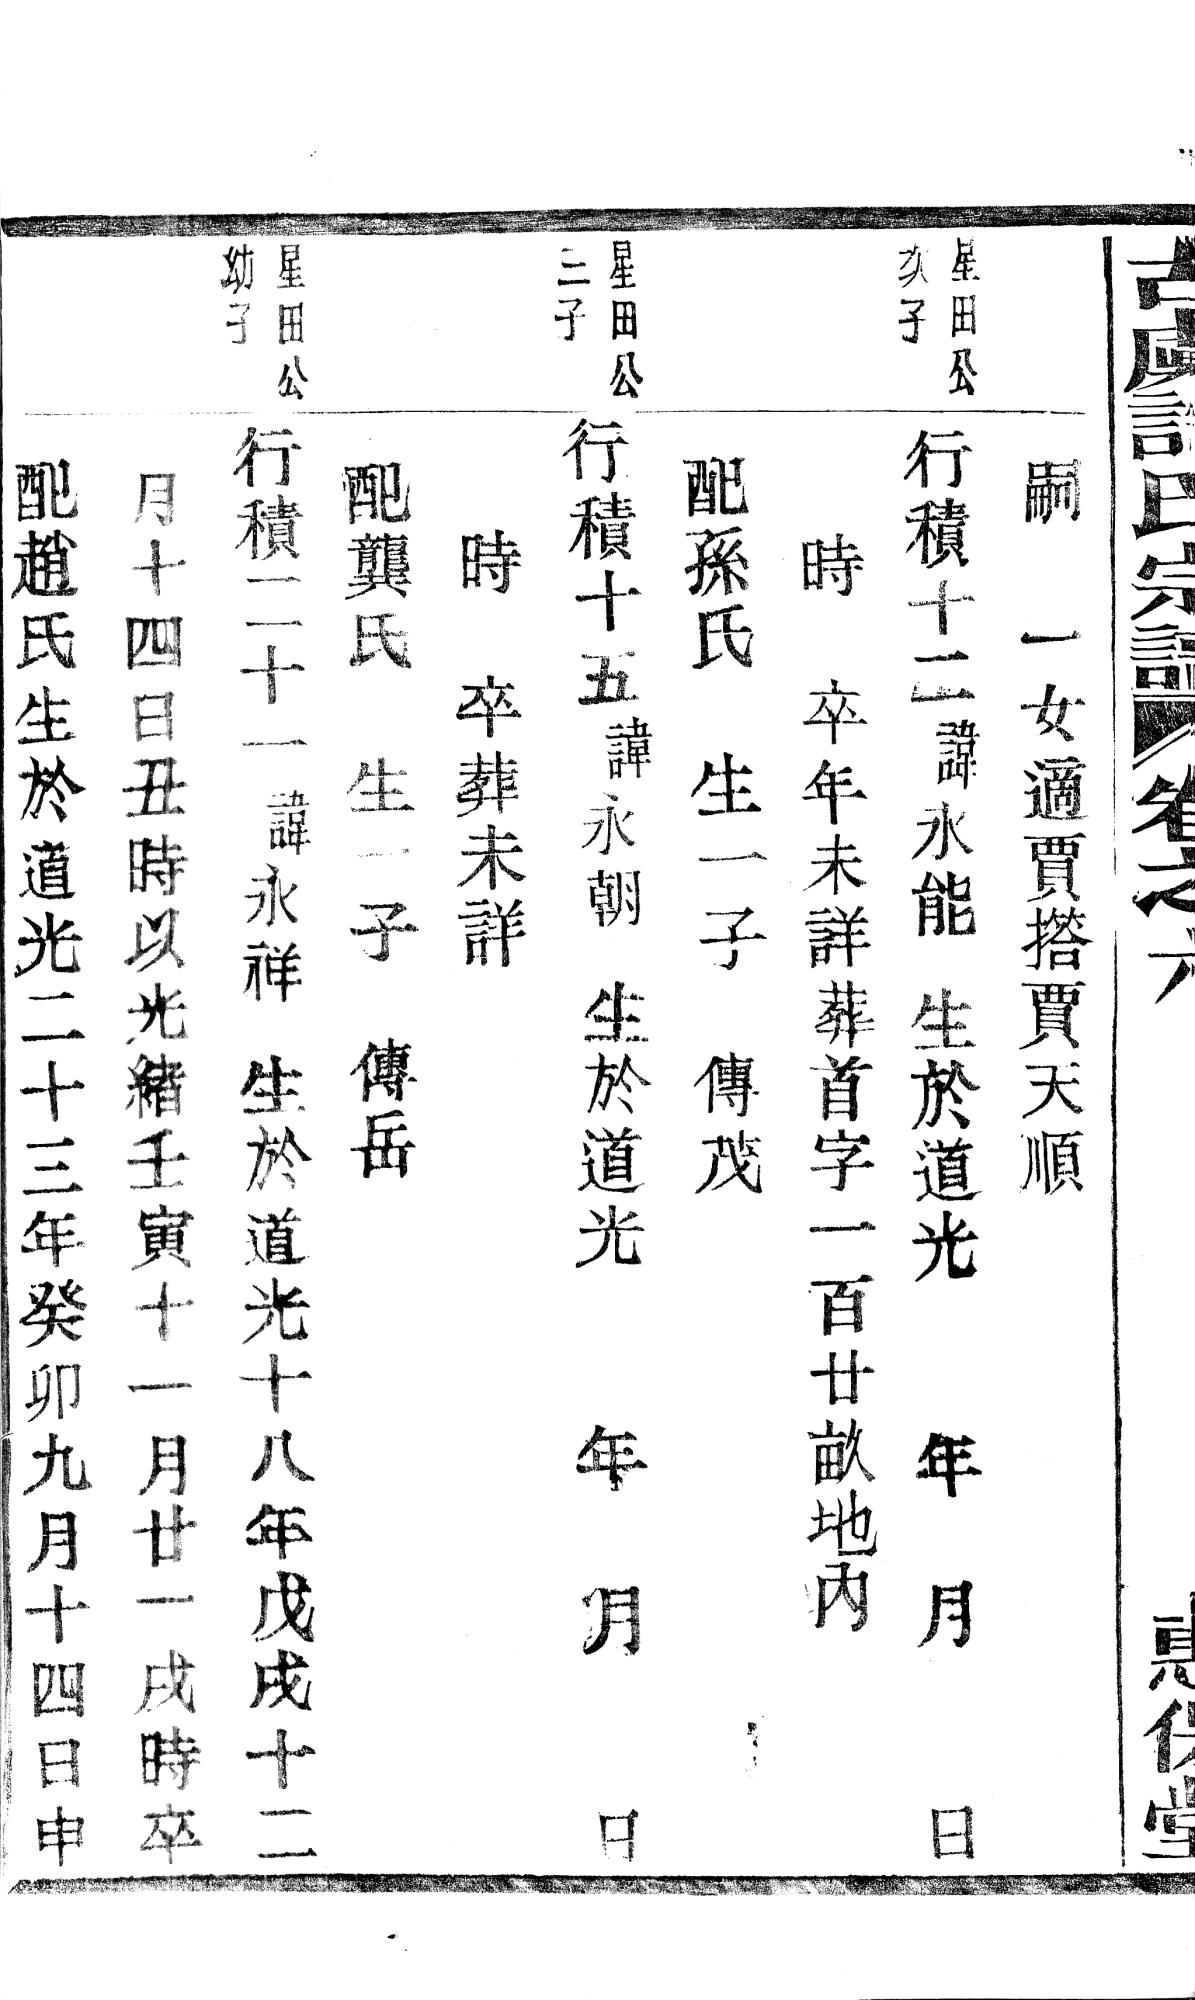 古虞氏宗譜 卷之六 堂
嗣 一女適賈撘賈天順
星田公
次子
行積十二諱永能 生於道光 年 月 日
時 卒年未詳葬首字一百廿畝地內
配孫氏 生一子 傳茂
星田公
三子
行積十五諱永朝 生於道光 年 月 日
時 卒葬未詳
配龔氏 生一子 傳岳
星田公
幼子
行積二十一諱永祥 生於道光十八年戊戌十二
月十四日丑時以光緒壬寅十一月廿一戌時卒
配趙氏生於道光二十三年癸卯九月十四日申